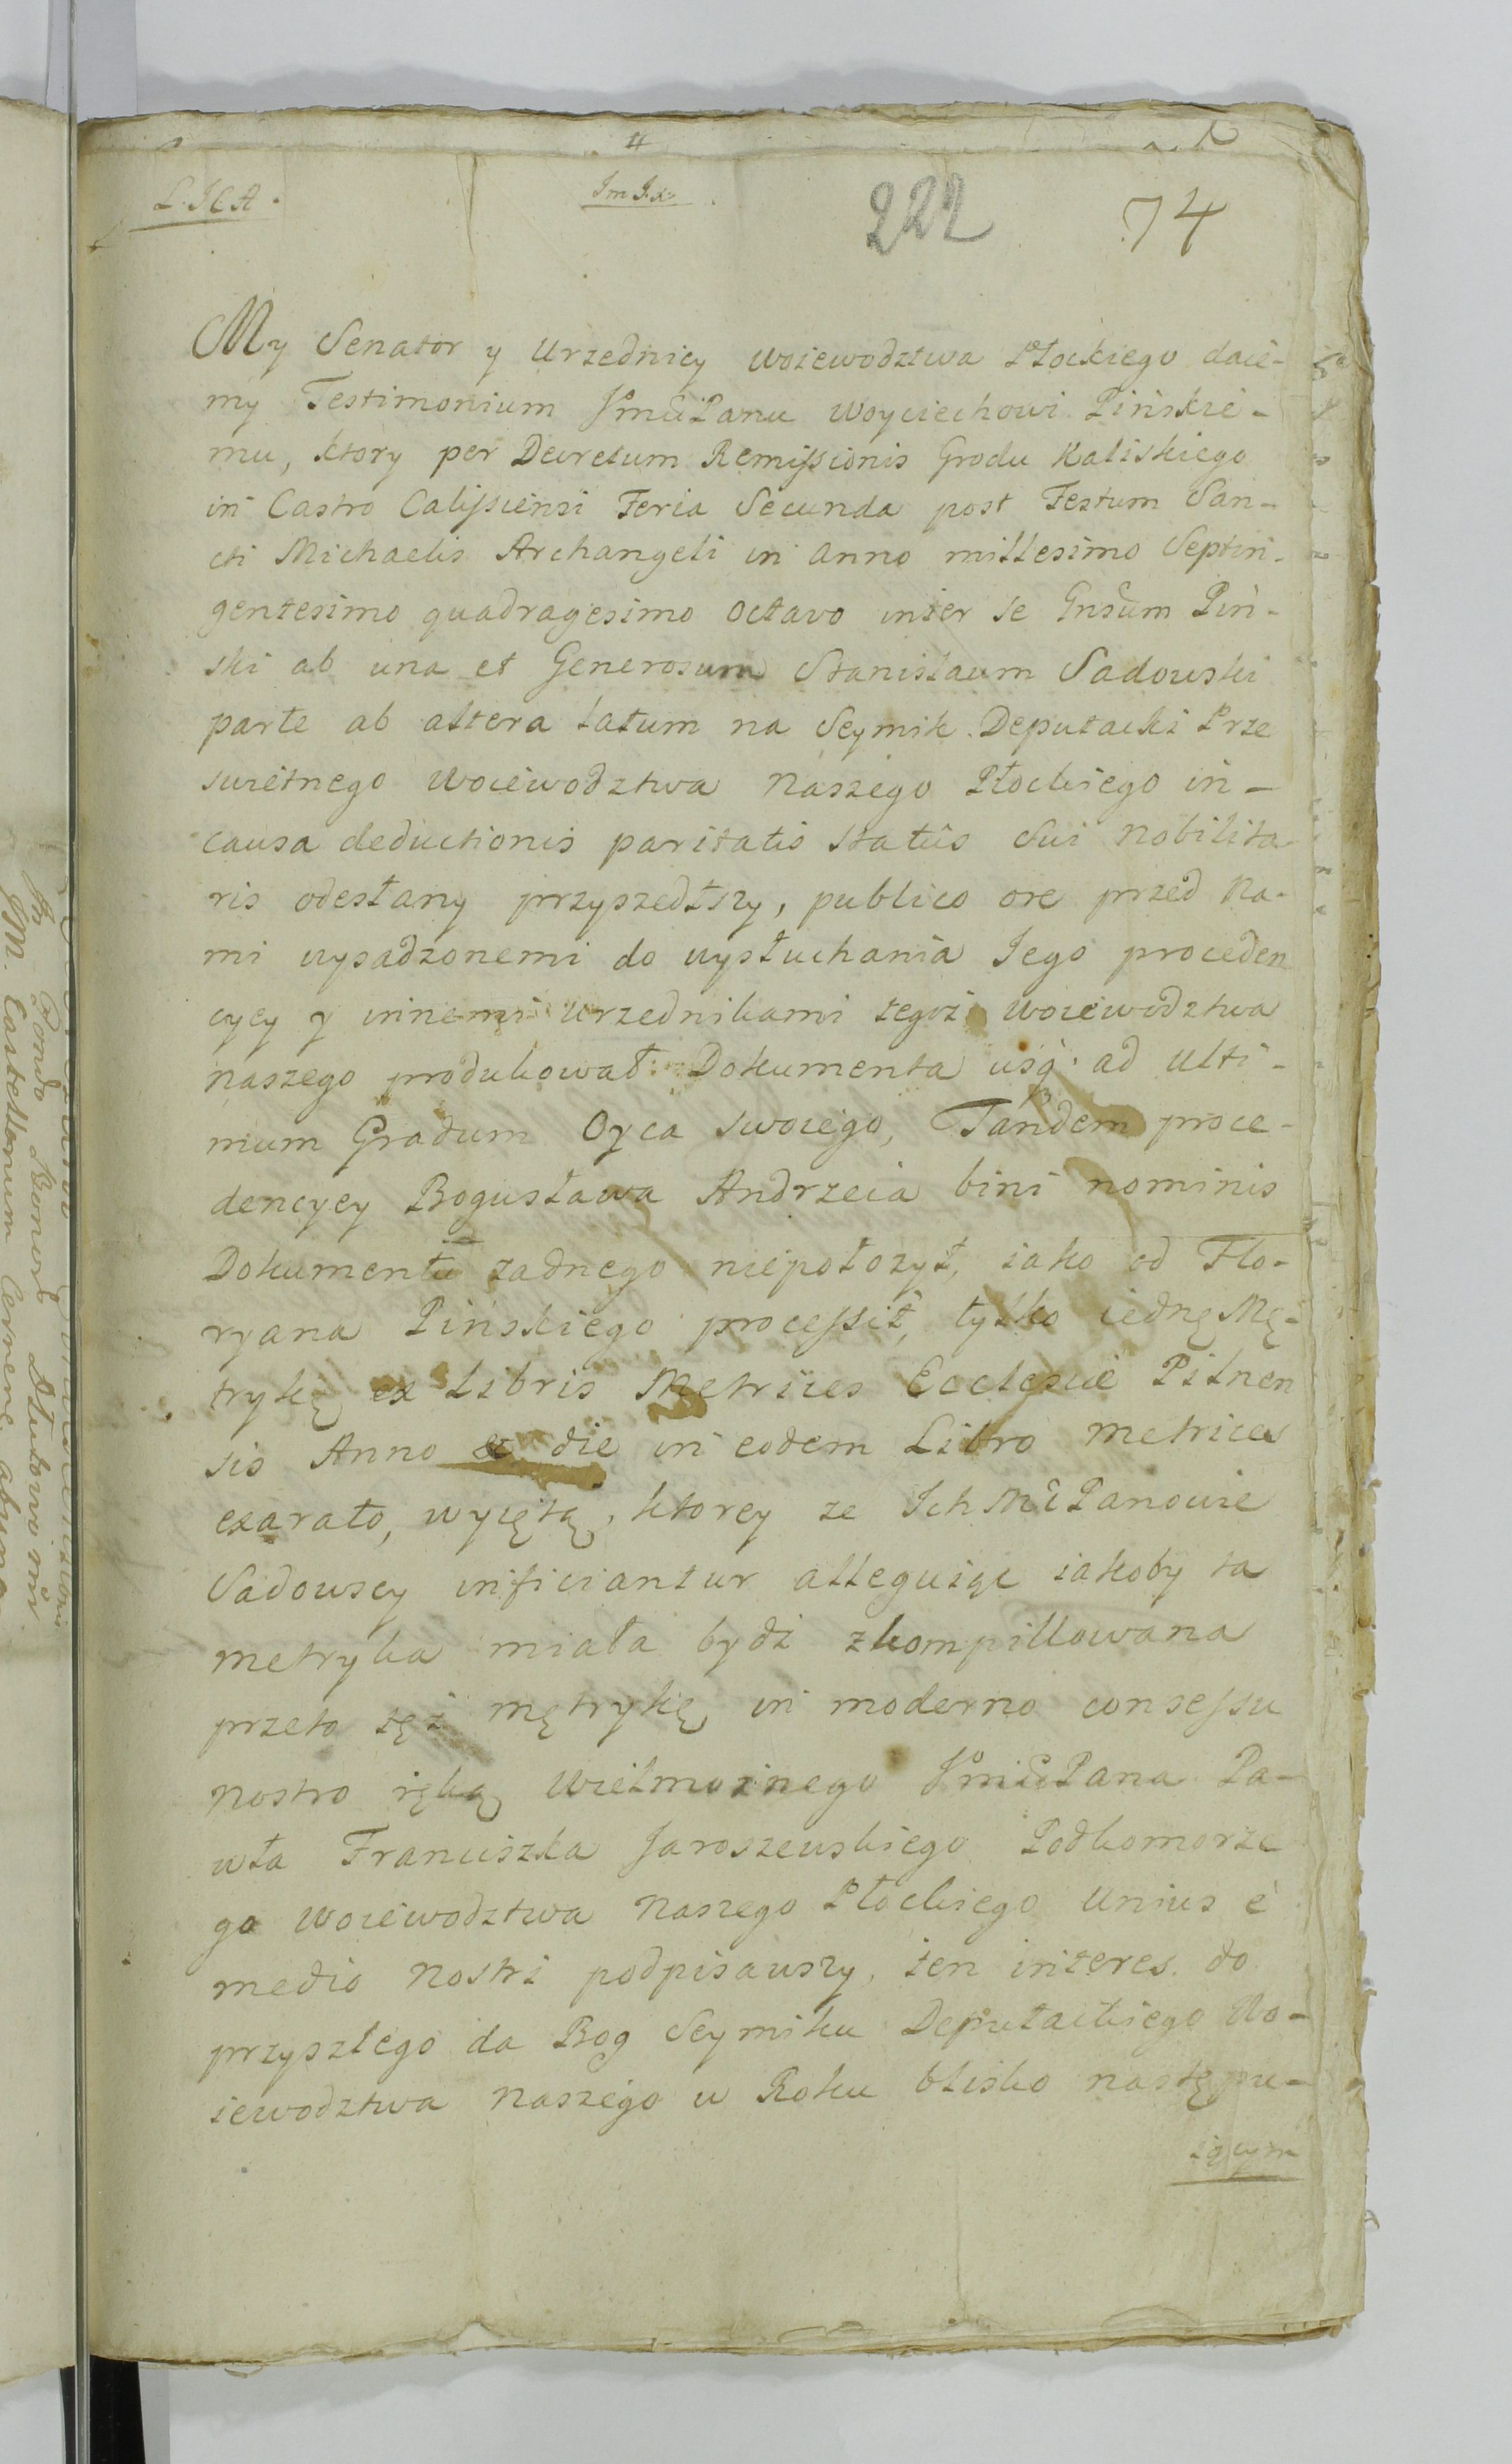 L. I C A.
Im I.x.
222
74
My Senator y Urzednicy woiewodztwa Płockiego daie-
my Testimonium JmciPanu Woyciechowi Pińskie-
mu, ktory per Decretum Remissionis Grodu Kaliskiego
in Castro Calissiensi Feria Secunda post Festum San-
cti Michaelis Archangeli in anno millesimo Septin-
gentesimo quadragesimo octavo inter se Gnsum Piń-
ski ab una et Generosum Stanislaum Sadowski
parte ab altera latum na Seymik Deputacki Prze
swietnego Woiewodztwa Naszego Płockiego in-
causa deductionis paritatis status sui nobilita
ris odesłany przyszedłszy, publico ore przed Na-
mi wysadzonemi do wysłuchania Jego proceden
cycy y innemi Urzednikami tegoż woiewodztwa
naszego produkował Dokumenta usq. ad Ulti-
mum Gradum Oyca swoiego, Tandem proce-
dencyey Bogusława Andrzeia bini nominis
Dokumentu zadnego niepołozył, iako od Flo-
ryana Pińskiego processit, tylko iednę Mę-
trykę ex Libris Metrices Ecclesiæ Pilnen
sis Anno & die in eodem Libro metrices
exarato, wyiętą, ktorey ze IchMćPanowie
Sadowscy inficiantur alleguiąc iakoby ta
metryka miała bydź zkompillowana
przeto tęż mętrykę in moderno consessu
nostro ręką Wielmoznego JmciPana Pa-
wła Franciszka Jaroszewskiego Podkomorze
go Woiewodztwa Naszego Płockiego Unius è
medio Nostri podpisawszy, ten interes do
przyszłego da Bog Seymiku Deputackiego Wo-
iewodztwa Naszego w Roku blisko następu-
iącym